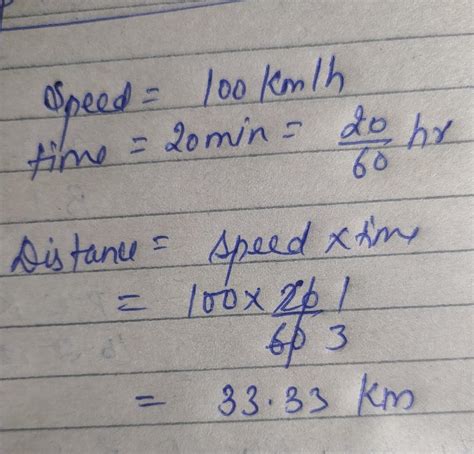 Speed = 100 km/h
time = 20 min = 20/60 hr
Distance = speed x time
= 100 x 20/60 1/3
= 33.33 km